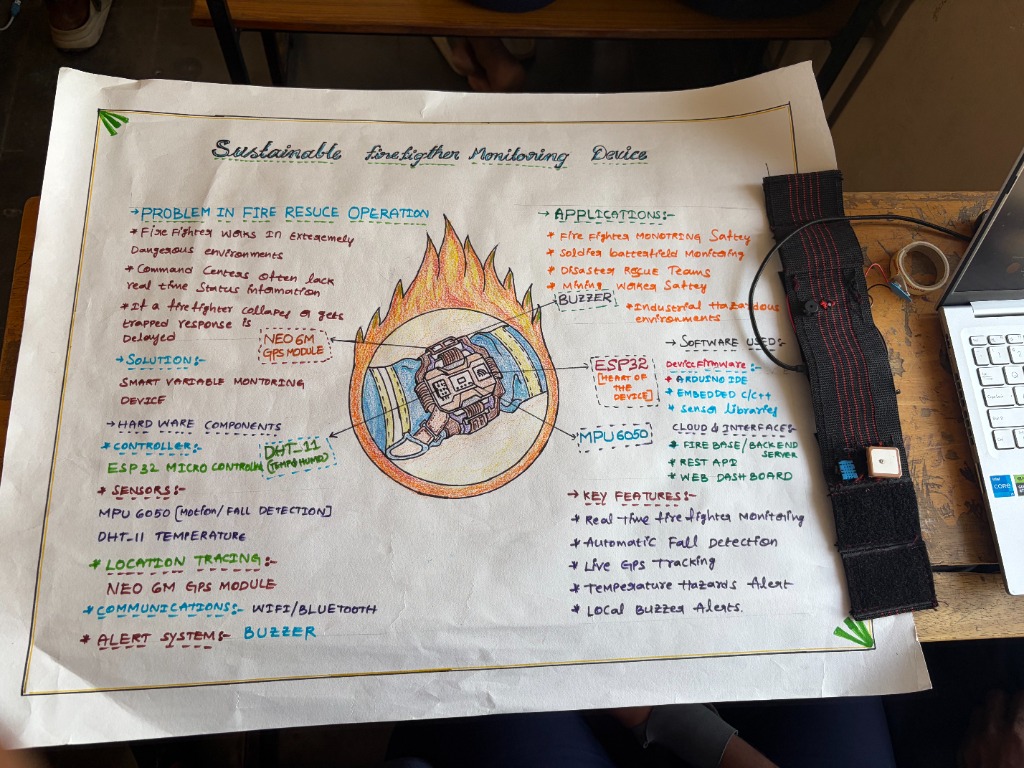 Sustainable firefigther Monitoring Device
→ PROBLEM IN FIRE RESUCE OPERATION
* Fire Fighter Works In Extremely
Dangerous environments
* Command Centers often lack
real time Status information
* If a firefighter collapse or gets
trapped response is
Delayed
→ SOLUTION:-
SMART VARIABLE MONTORING
DEVICE
→ HARD WARE COMPONENTS
* CONTROLLER:-
ESP 32 MICRO CONTROLLR
* SENSORS:-
MPU 6050 [MOTION/ FALL DETECTION]
DHT-11 TEMPERATURE
* LOCATION TRACING:-
NEO 6M GPS MODULE
* COMMUNICATIONS:- WIFI/BLUETOOTH
* ALERT SYSTEM:- BUZZER
NEO 6M
GPS MODULE
DHT-11
(TEMP/HUMD)
BUZZER
ESP32
[HEART OF
THE
DEVICE]
MPU 6050
→ APPLICATIONS:-
* Fire Fighter MONOTRING Saftey
* Soldier batterfield Monitoring
* Disaster Rescue Teams
* Mining Worker Saftey
* Industrial Hazardous
environments
→ SOFTWARE USED:-
Device firmware:
* ARDUINO IDE
* EMBEDDED C/C++
* Sensor libraries
CLOUD & INTERFACE:-
* FIRE BASE/BACK END
SERVER
* REST API
* WEB DASH BOARD
→ KEY FEATURES:-
* Real time fire fighter Monitoring
* Automatic Fall Detection
* Live GPS Tracking
* Temperature Hazards Alert
* Local Buzzer Alerts.
CORE